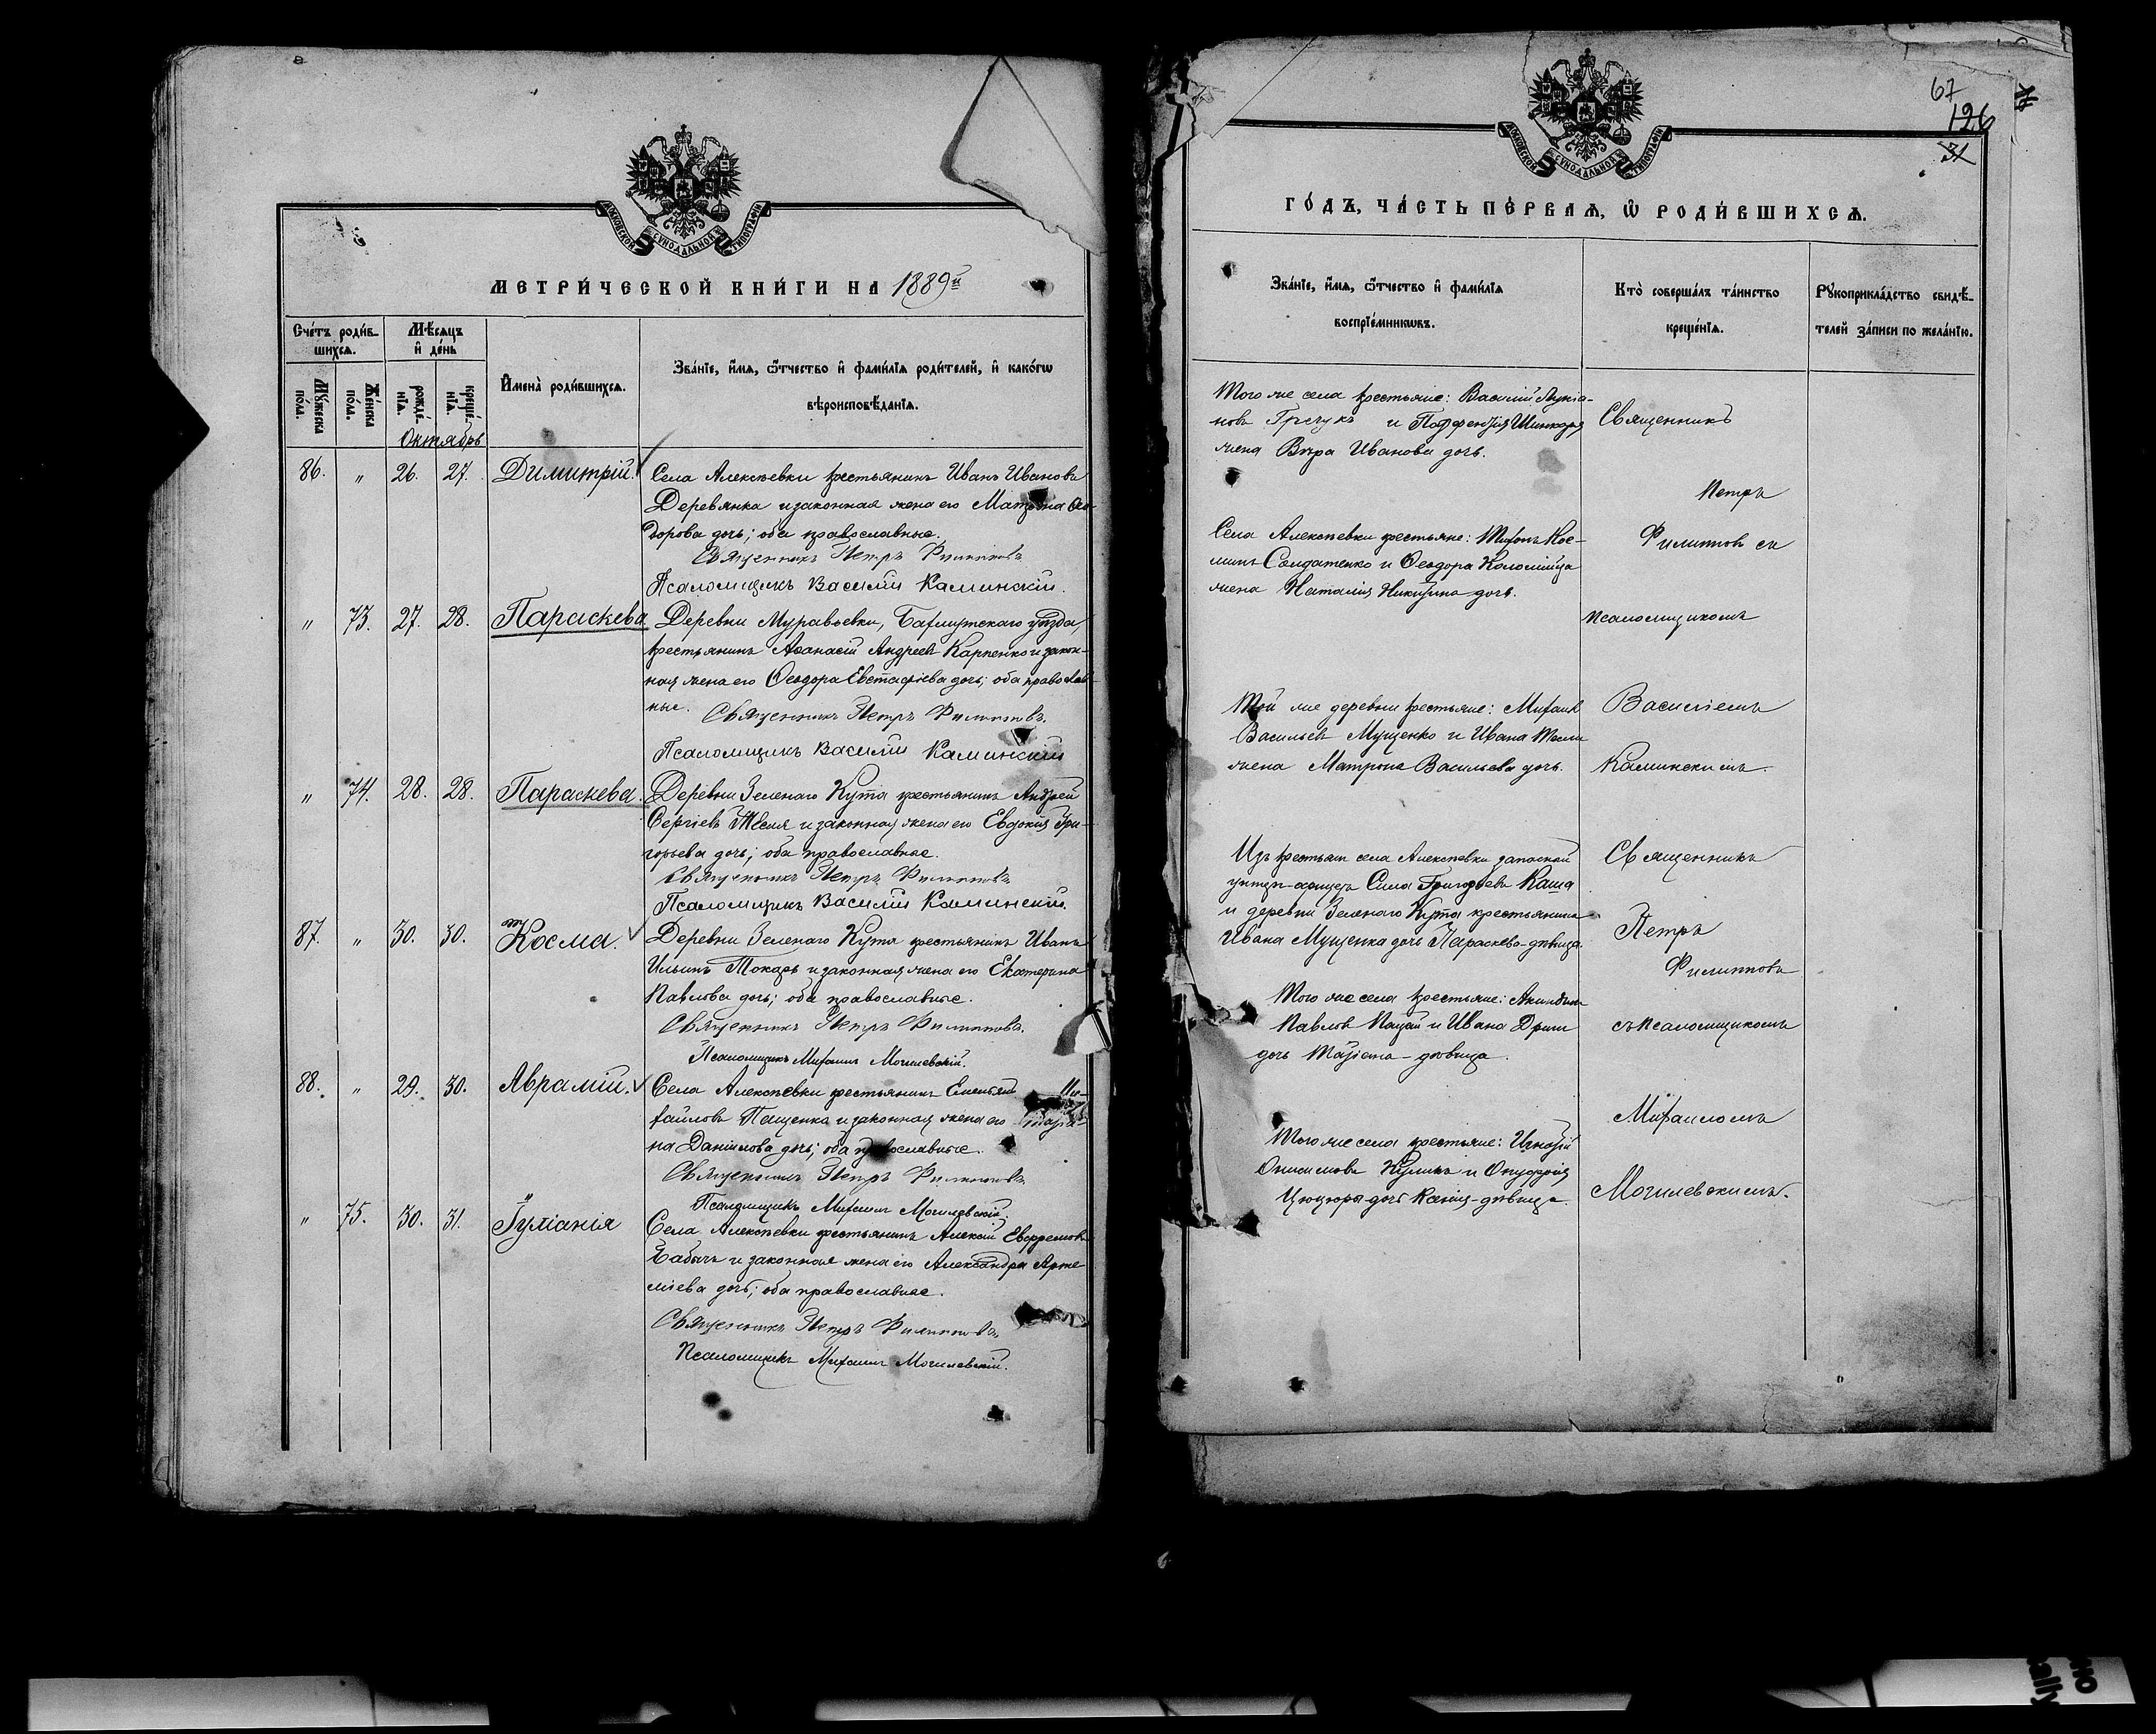 МОСКОВСКОЙ СѴНОДАЛЬНОЙ ТИПОГРАФІИ
МЕТРИ́ЧЕСКОЙ КНИ́ГИ НА 1889й
Сче́тъ роди́в-
шихсѧ.
Мѣ́сѧцъ
и҆ де́нь
Мꙋ́жеска
по́ла.
Же́нска
по́ла.
рожде́-
нїѧ.
креще́-
нїѧ.
И҆мена̀ роди́вшихсѧ.
Зва́нїе, и҆́мѧ, ѻ҆́тчество и҆ фами́лїѧ роди́телей, и҆ како́гѡ
вѣроисповѣ́данїѧ.
Октябрь
86. " 26. 27. Димитрій.
Села Алексѣевки крестьянинъ Иванъ Ивановъ
Деревянка и законная жена его Матрона Ѳео-
дорова дочь; оба православные.
Священникъ Петръ Филипповъ
Псаломщикъ Василій Каминскій.
" 73. 27. 28. Параскева
Деревни Муравьевки, Бахмутскаго уѣзда,
крестьянинъ Аѳанасій Андреевъ Карпенко и закон-
ная жена его Ѳеодора Евстафіева дочь; оба православ-
ные.
Священникъ Петръ Филипповъ.
Псаломщикъ Василій Каминскій
" 74. 28. 28. Параскева.
Деревни Зеленаго Кута крестьянинъ Андрей
Сергіевъ Тесля и законная жена его Евдокія Гри-
горьева дочь; оба православные.
Священникъ Петръ Филипповъ
Псаломщикъ Василій Каминскій.
87. " 30. 30. Косма.
Деревни Зеленаго Кута крестьянинъ Иванъ
Ильинъ Токарь и законная жена его Екатерина
Павлова дочь; оба православные.
Священникъ Петръ Филипповъ.
Псаломщикъ Михаилъ Могилевскій.
88. " 29. 30. Аврамій.
Села Алексѣевки крестьянинъ Емельянъ Ми-
хайловъ Пащенко и законная жена его Марiа-
на Даніилова дочь; оба православные.
Священникъ Петръ Филипповъ
Псаломщикъ Михаилъ Могилевскій.
" 75. 30. 31. Іуліанія
Села Алексѣевки крестьянинъ Алексій Евфремовъ
Бабичъ и законная жена его Александра Арте-
міева дочь; оба православные.
Священникъ Петръ Филипповъ
Псаломщикъ Михаилъ Могилевскій.
67
126
31
МОСКОВСКОЙ СѴНОДАЛЬНОЙ ТИПОГРАФІИ
ГО́ДЪ, ЧА́СТЬ ПЕ́РВАѦ, Ѡ҆ РОДИ́ВШИХСѦ.
Зва́нїе, и҆́мѧ, ѻ҆́тчество и҆ фами́лїѧ
воспрїе́мникѡвъ.
Кто̀ соверша́лъ та́инство
креще́нїѧ.
Рꙋкоприкла́дство свидѣ́-
телей за́писи по жела́нїю.
Того же села крестьяне: Василій Лукіа-
новъ Гречукъ и
жена Вѣра Иванова дочь.
Священникъ
Петръ
Филипповъ съ
Села Алексѣевки крестьяне: Кос-
минъ Солдатенко и Ѳеодора Коломійца
жена Наталія Никитина дочь.
псаломщикомъ
Той же деревни крестьяне: Михаилъ
Васильевъ Мущенко и Ивана Тесли
жена Матрона Васильева дочь.
Василіемъ
Каминскимъ.
Изъ крестьянъ села Алексѣевки запасной
унтеръ-офицеръ Сила Григорьевъ Каша
и деревни Зеленаго Кута крестьянина
Ивана Мущенка дочь Параскева-дѣвица.
Священникъ
Петръ
Филипповъ
Того же села крестьяне:
Павловъ и Ивана
дочь -дѣвица.
съ псаломщикомъ
Михаиломъ
Того же села крестьяне: Игнатій
Онисимовъ Куликъ и Онуфрія
Цюцюры дочь Ксенія-дѣвица.
Могилевскимъ.